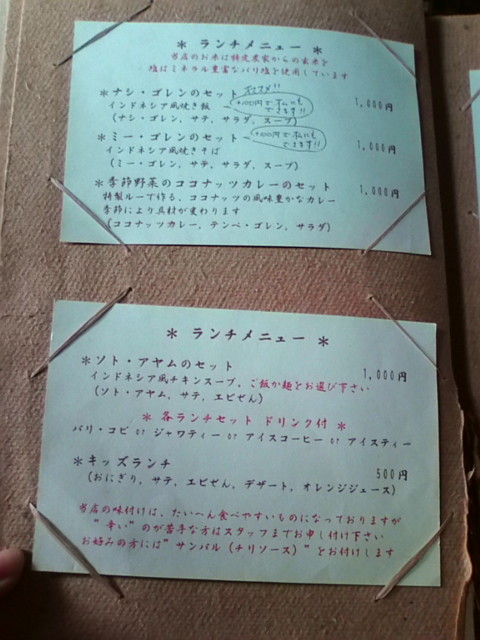 ＊ ランチメニュー ＊
当店のお米は特定農家からの玄米を
塩はミネラル豊富なバリ塩を使用しています
＊ナシ・ゴレンのセット オススメ!! 1,000円
インドネシア風焼き飯
+100円で
できます!!
(ナシ・ゴレン, サテ, サラダ, スープ)
＊ミー・ゴレンのセット 1,000円
インドネシア風焼きそば
できます!!
(ミー・ゴレン, サテ, サラダ, スープ)
＊季節野菜のココナッツカレーのセット 1,000円
特製ルーで作る, ココナッツの風味豊かなカレー
季節により具材が変わります
(ココナッツカレー, テンペ・ゴレン, サラダ)
＊ ランチメニュー ＊
＊ソト・アヤムのセット 1,000円
インドネシア風チキンスープ, ご飯か麺をお選び下さい
(ソト・アヤム, サテ, エビせん)
＊ 各ランチセット ドリンク付 ＊
バリ・コピ or ジャワティー or アイスコーヒー or アイスティー
＊キッズランチ 500円
(おにぎり, サテ, エビせん, デザート, オレンジジュース)
当店の味付けは、たいへん食べやすいものになっておりますが
"辛い"のが苦手な方はスタッフまでお申し付け下さい
お好みの方には"サンバル(チリソース)"をお付けします